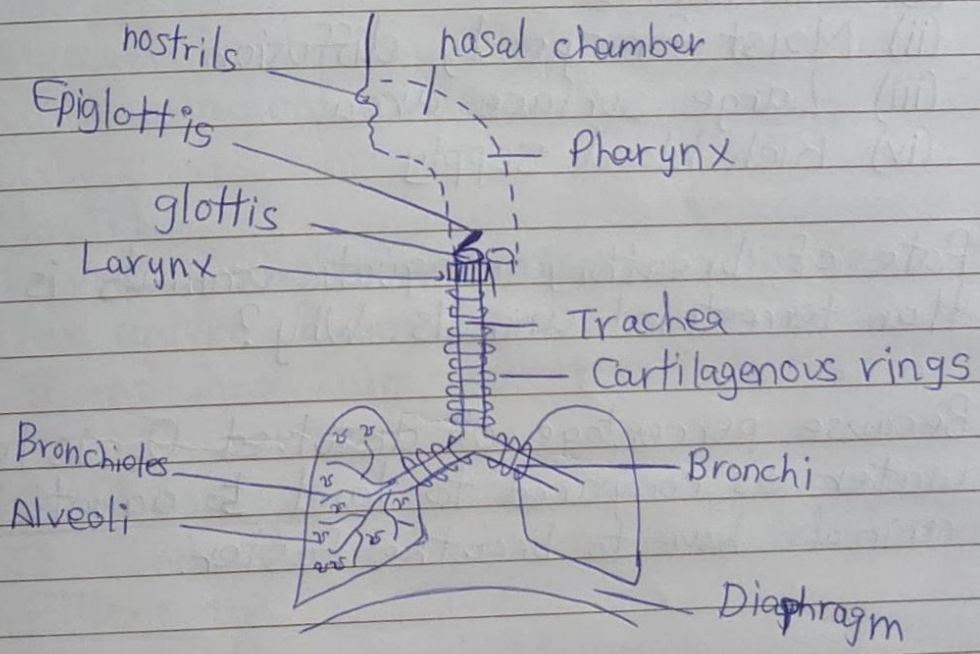 nostrils
nasal chamber
Epiglottis
Pharynx
glottis
Larynx
Trachea
Cartilagenous rings
Bronchioles
Bronchi
Alveoli
Diaphragm